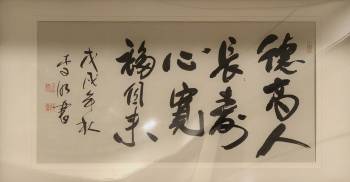 德高人
長壽
心寬
福自来
戊戌年秋
李欣書